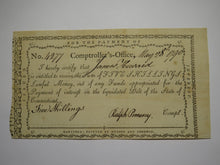 FOR THE PAYMENT OF
No. 4277 Comptroller's-Office, May 28th 1790
I hereby certify that James
entitled to receive the Sum of FIVE SHILLINGS,
Lawful Money, out of any Funds appropriated for the
Payment of interest on the Liquidated Debt of the State of
Connecticut.
Five Shillings Ralph Pomeroy Compt.
HARTFORD: PRINTED BY HUDSON AND GOODWIN.